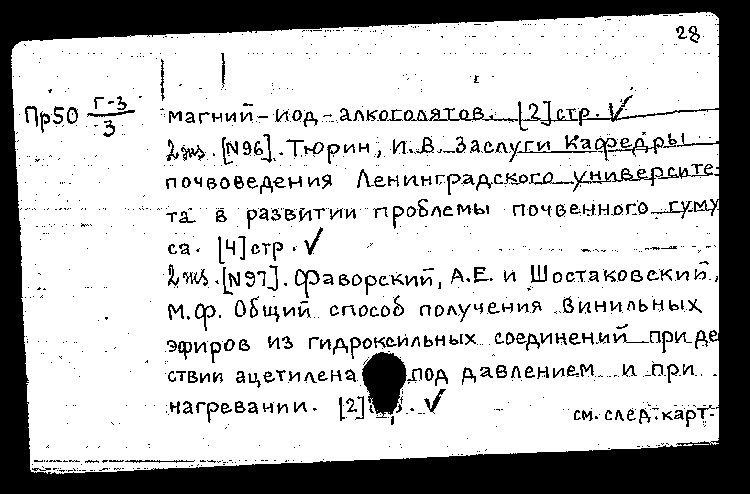 28
Пр50 Г-3/3
магний-иод-алкоголятов. [2] стр. ✓
2 экз. [N96]. Тюрин, И.В. Заслуги Кафедры
почвоведения Ленинградского университе-
та в развитии проблемы почвенного гуму
са. [4] стр. ✓
2 экз. [N97]. Фаворский, А.Е. и Шостаковский,
М.Ф. Общий способ получения винильных
эфиров из гидроксильных соединений при де
ствии ацетилена под давлением и при
нагревании. [2] . ✓
см. след. карт.